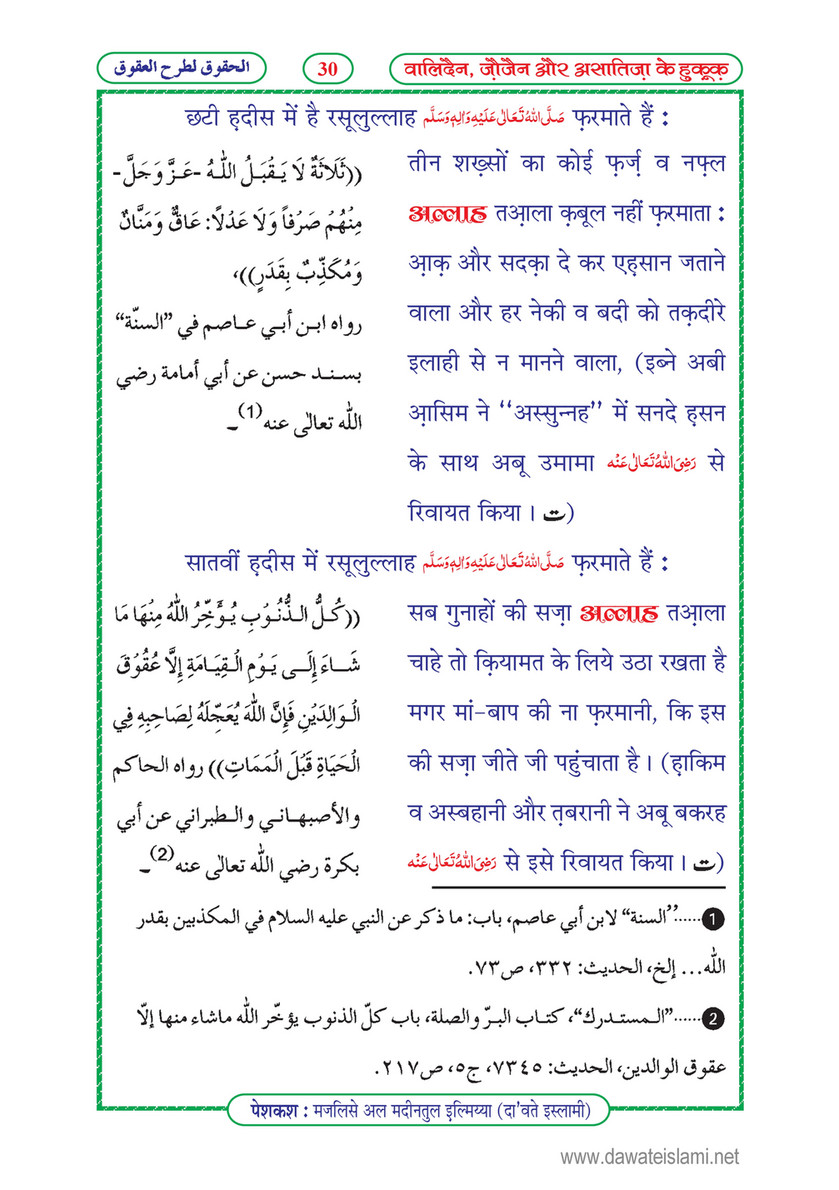 الحقوق لطرح العقوق
30
वालिदैन, ज़ौजैन और असातिज़ा के हुक़ूक़
छटी ह़दीस में है रसूलुल्लाह صَلَّى اللهُ تَعَالٰى عَلَيْهِ وَاٰلِهٖ وَسَلَّم फ़रमाते हैं :
तीन शख़्सों का कोई फ़र्ज़ व नफ़्ल
अल्लाह तआ़ला क़बूल नहीं फ़रमाता :
आ़क़ और सदक़ा दे कर एह़सान जताने
वाला और हर नेकी व बदी को तक़दीरे
इलाही से न मानने वाला, (इब्ने अबी
आ़सिम ने ‘‘अस्सुन्नह’’ में सनदे ह़सन
के साथ अबू उमामा رَضِىَ اللهُ تَعَالٰى عَنْه से
रिवायत किया । ت)
((ثَلَاثَةٌ لَا يَـقْبَـلُ اللّٰـهُ -عَـزَّ وَجَلَّ-
مِنْهُمْ صَرْفاً وَلَا عَدْلًا: عَاقٌّ وَمَنَّانٌ
وَمُكَذِّبٌ بِقَدَرٍ))،
رواه ابـن أبـي عـاصم في ”السنّة“
بسـنـد حسن عن أبي أمامة رضي
اللّٰه تعالٰى عنه(1)۔
सातवीं ह़दीस में रसूलुल्लाह صَلَّى اللهُ تَعَالٰى عَلَيْهِ وَاٰلِهٖ وَسَلَّم फ़रमाते हैं :
सब गुनाहों की सज़ा अल्लाह तआ़ला
चाहे तो क़ियामत के लिये उठा रखता है
मगर मां-बाप की ना फ़रमानी, कि इस
की सज़ा जीते जी पहुंचाता है । (ह़ाकिम
व अस्बहानी और त़बरानी ने अबू बकरह
رَضِىَ اللهُ تَعَالٰى عَنْه से इसे रिवायत किया । ت)
((كُـلُّ الـذُّنُـوْبِ يُـؤَخِّرُ اللّٰهُ مِنْهَا مَا
شَـاءَ إِلَــى يَـوْمِ الْـقِيَـامَةِ إِلَّا عُقُوْقَ
الْـوَالِدَيْنِ فَإِنَّ اللّٰهَ يُعَجِّلَهُ لِصَاحِبِهِ فِي
الْحَيَاةِ قَبْلَ الْمَمَاتِ)) رواه الحاكم
والأصبهـانـي والـطبراني عن أبي
بكرة رضي اللّٰه تعالى عنه(2)۔
1......”السنة“ لابن أبي عاصم، باب: ما ذكر عن النبي عليه السلام في المكذبين بقدر
اللّٰه... إلخ، الحديث: ٣٣٢، ص٧٣.
2......”الـمستـدرك“، كتـاب البـرّ والصلة، باب كلّ الذنوب يؤخّر اللّٰه ماشاء منها إلّا
عقوق الوالدين، الحديث: ٧٣٤٥، ج٥، ص٢١٧.
पेशकश : मजलिसे अल मदीनतुल इ़ल्मिय्या (दा'वते इस्लामी)
www.dawateislami.net